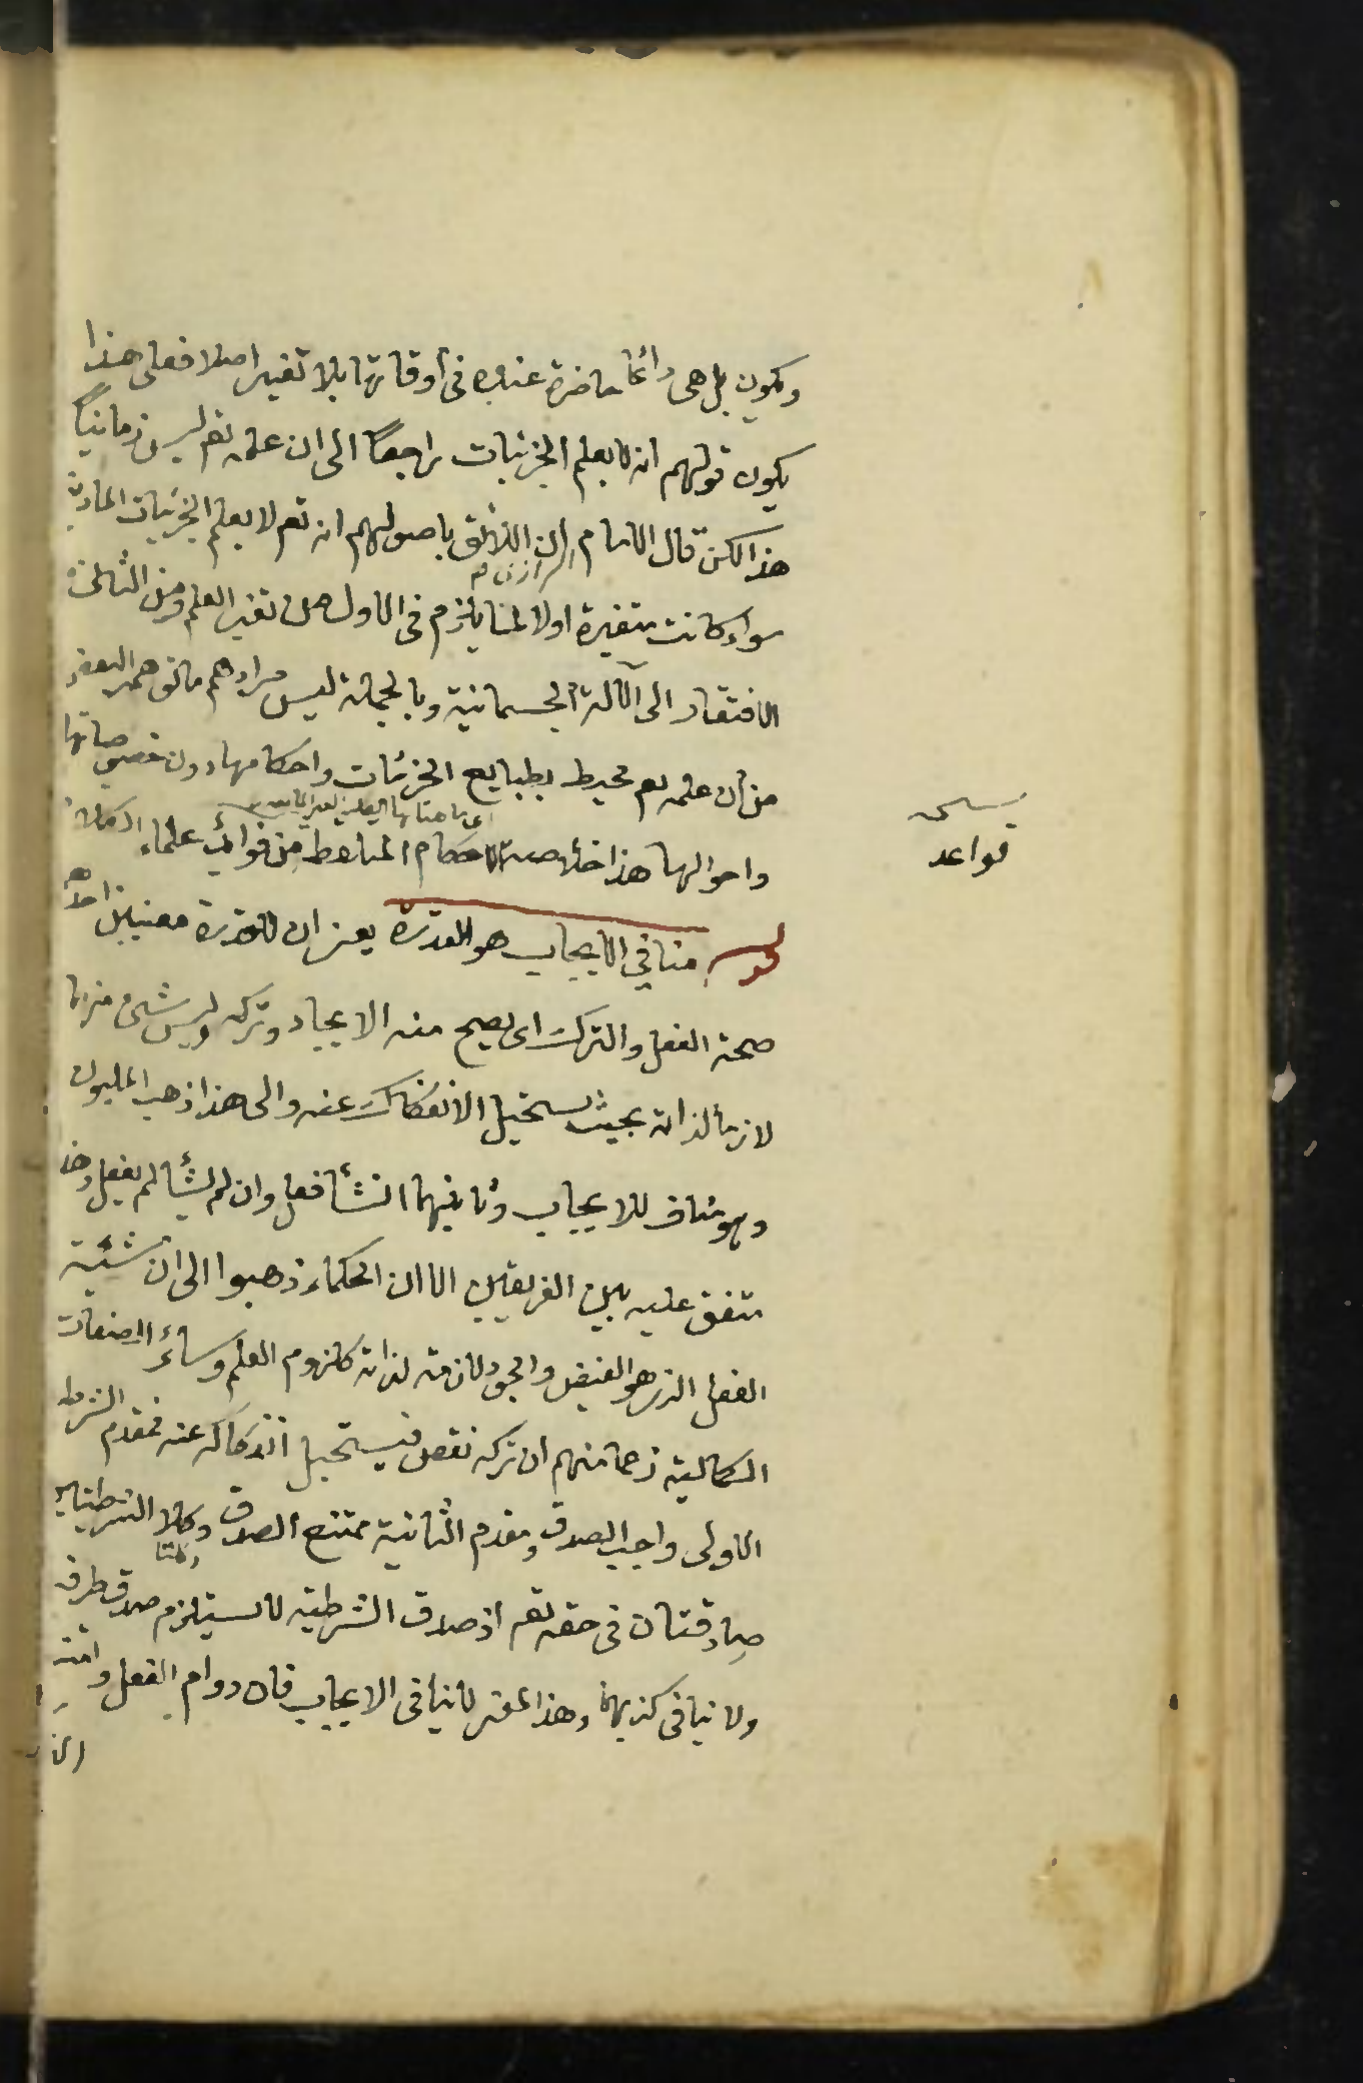 ويكون بل هى دائما حاضرة عنده فى أوقاتها بلا تغير اصلا فعلى هذا
يكون قولهم انه لا يعلم الجزئيات راجعاً الى ان علمه تعم ليس زمانياً
هذا لكن قال الامام الرازى ان اللائق باصولهم انه تعم لا يعلم الجزئيات المادية
سواء كانت متغيرة اولا لما يلزم فى الاول من تغير العلم ومن الثانى
الافتقار الى الآلة الجسمانية وبالجملة ليس مرادهم ما توهمه البعض
من أن علمه تعم محيط بطبايع الجزئيات واحكامها دون خصوصياتها
واحوالها هذا خلاصة الاحكام من فوائد علماء
نسخه
قواعد
قوله منافي الايجاب هو القدرة يعنى ان للقدرة معنيين احدهما
صحة الفعل والترك اى يصح منه الايجاد وتركه وليس شئ منهما
لازماً لذاته بحيث يستحيل الانفكاك عنه والى هذا ذهب المليون
وهو مناف للايجاب وثانيهما ان شأ فعل وان لم يشأ لم يفعل وهذا
متفق عليه بين الفريقين الا ان الحكماء ذهبوا الى أن مشيئة
الفعل الذى هو الفيض والجود لازمة لذاته كلزوم العلم وسائر الصفات
الكمالية زعما منهم ان تركه نقص فيستحيل انفكاكه عنه فمقدم الشرطية
الاولى واجب الصدق ومقدم الثانية ممتنع الصدق وكلا الشرطيتين
وكلتا
صادقتان فى حقه تعم اذ صدق الشرطية لا يستلزم صدق طرفيه
ولا ينافى كذبهما وهذا المعنى لا ينافى الايجاب فان دوام الفعل وامتناع